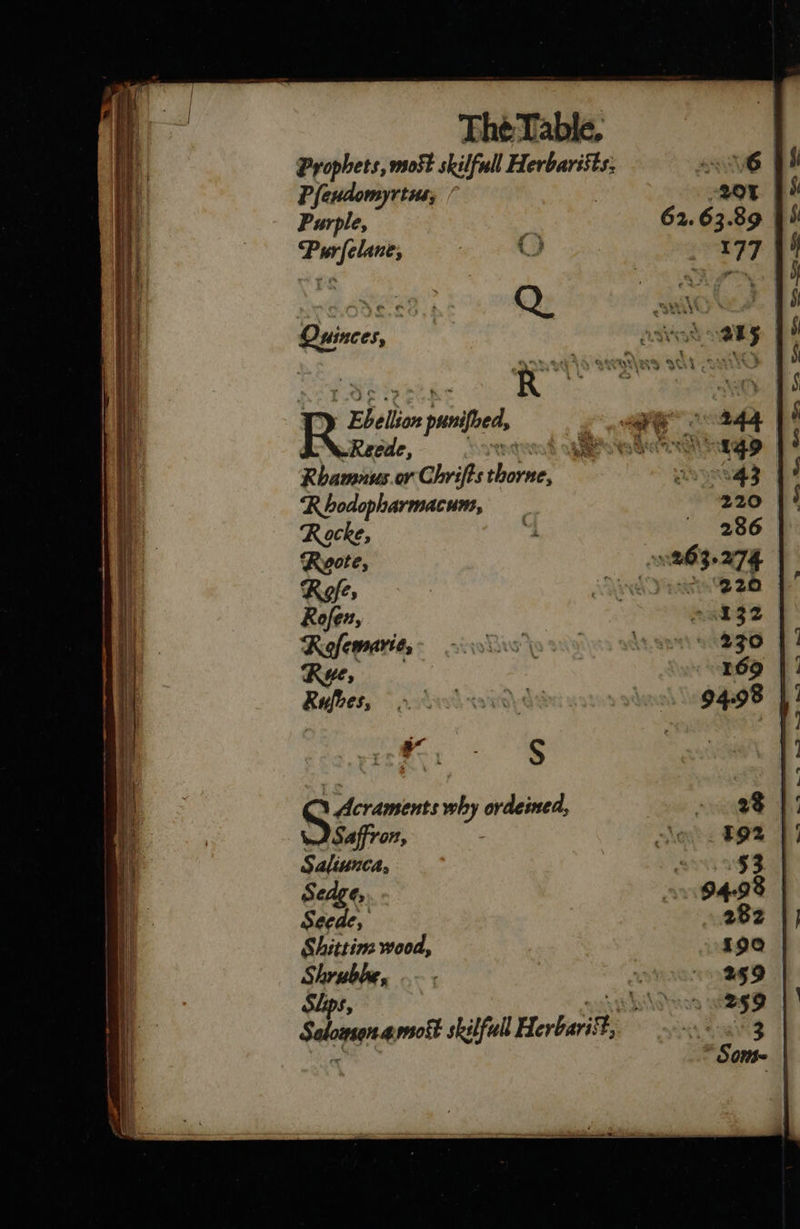 The Table.
Prophets, most skilfull Herbarists, 6
Pſeudomyrtus, 201
Purple, 62.63.89
Purſelane, 177
Q
Quinces, 215
R
REbellion puniſhed, 244
Reede, 149
Rhamnus or Chriſts thorne, 43
Rhodopharmacum, 220
Rocke, 286
Roote, 263.274
Roſe, 220
Roſen, 132
Roſemarie, 230
Rye, 169
Ruſhes, 94.98
S
SAcraments why ordeined, 28
Saffron, 192
Saliunca, 53
Sedge, 94.98
Seede, 282
Shittim wood, 190
Shrubbe, 259
Slips, 259
Salomon a most skilfull Herbarist, 3
Som-